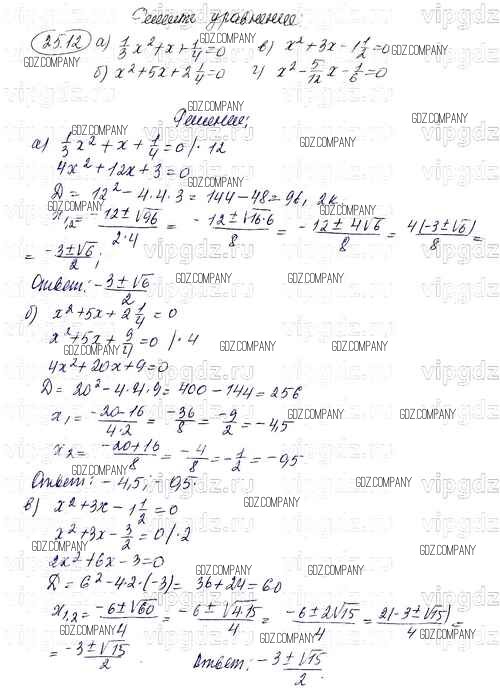 Решите уравнение:
25.12 а) 1/3 x² + x + 1/4 = 0 в) x² + 3x - 1 1/2 = 0
б) x² + 5x + 2 1/4 = 0 г) x² - 5/12 x - 1/6 = 0
Решение:
а) 1/3 x² + x + 1/4 = 0 /· 12
4x² + 12x + 3 = 0
D = 12² - 4·4·3 = 144 - 48 = 96, 2к
x₁,₂ = (-12 ± √96)/(2·4) = (-12 ± √16·6)/8 = (-12 ± 4√6)/8 = 4(-3 ± √6)/8 =
= (-3 ± √6)/2;
Ответ: (-3 ± √6)/2
б) x² + 5x + 2 1/4 = 0
x² + 5x + 9/4 = 0 /· 4
4x² + 20x + 9 = 0
D = 20² - 4·4·9 = 400 - 144 = 256
x₁ = (-20-16)/(4·2) = -36/8 = -9/2 = -4,5
x₂ = (-20+16)/8 = -4/8 = -1/2 = -0,5
Ответ: -4,5; -0,5.
в) x² + 3x - 1 1/2 = 0
x² + 3x - 3/2 = 0 /· 2
2x² + 6x - 3 = 0
D = 6² - 4·2·(-3) = 36 + 24 = 60
x₁,₂ = (-6 ± √60)/4 = (-6 ± √4·15)/4 = (-6 ± 2√15)/4 = 2(-3 ± √15)/4 =
= (-3 ± √15)/2. Ответ: (-3 ± √15)/2.